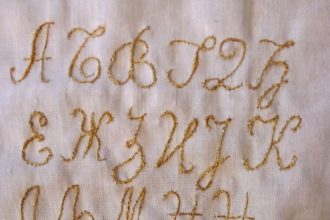 А Б В Г Д Ђ
Е Ж З И Ј К